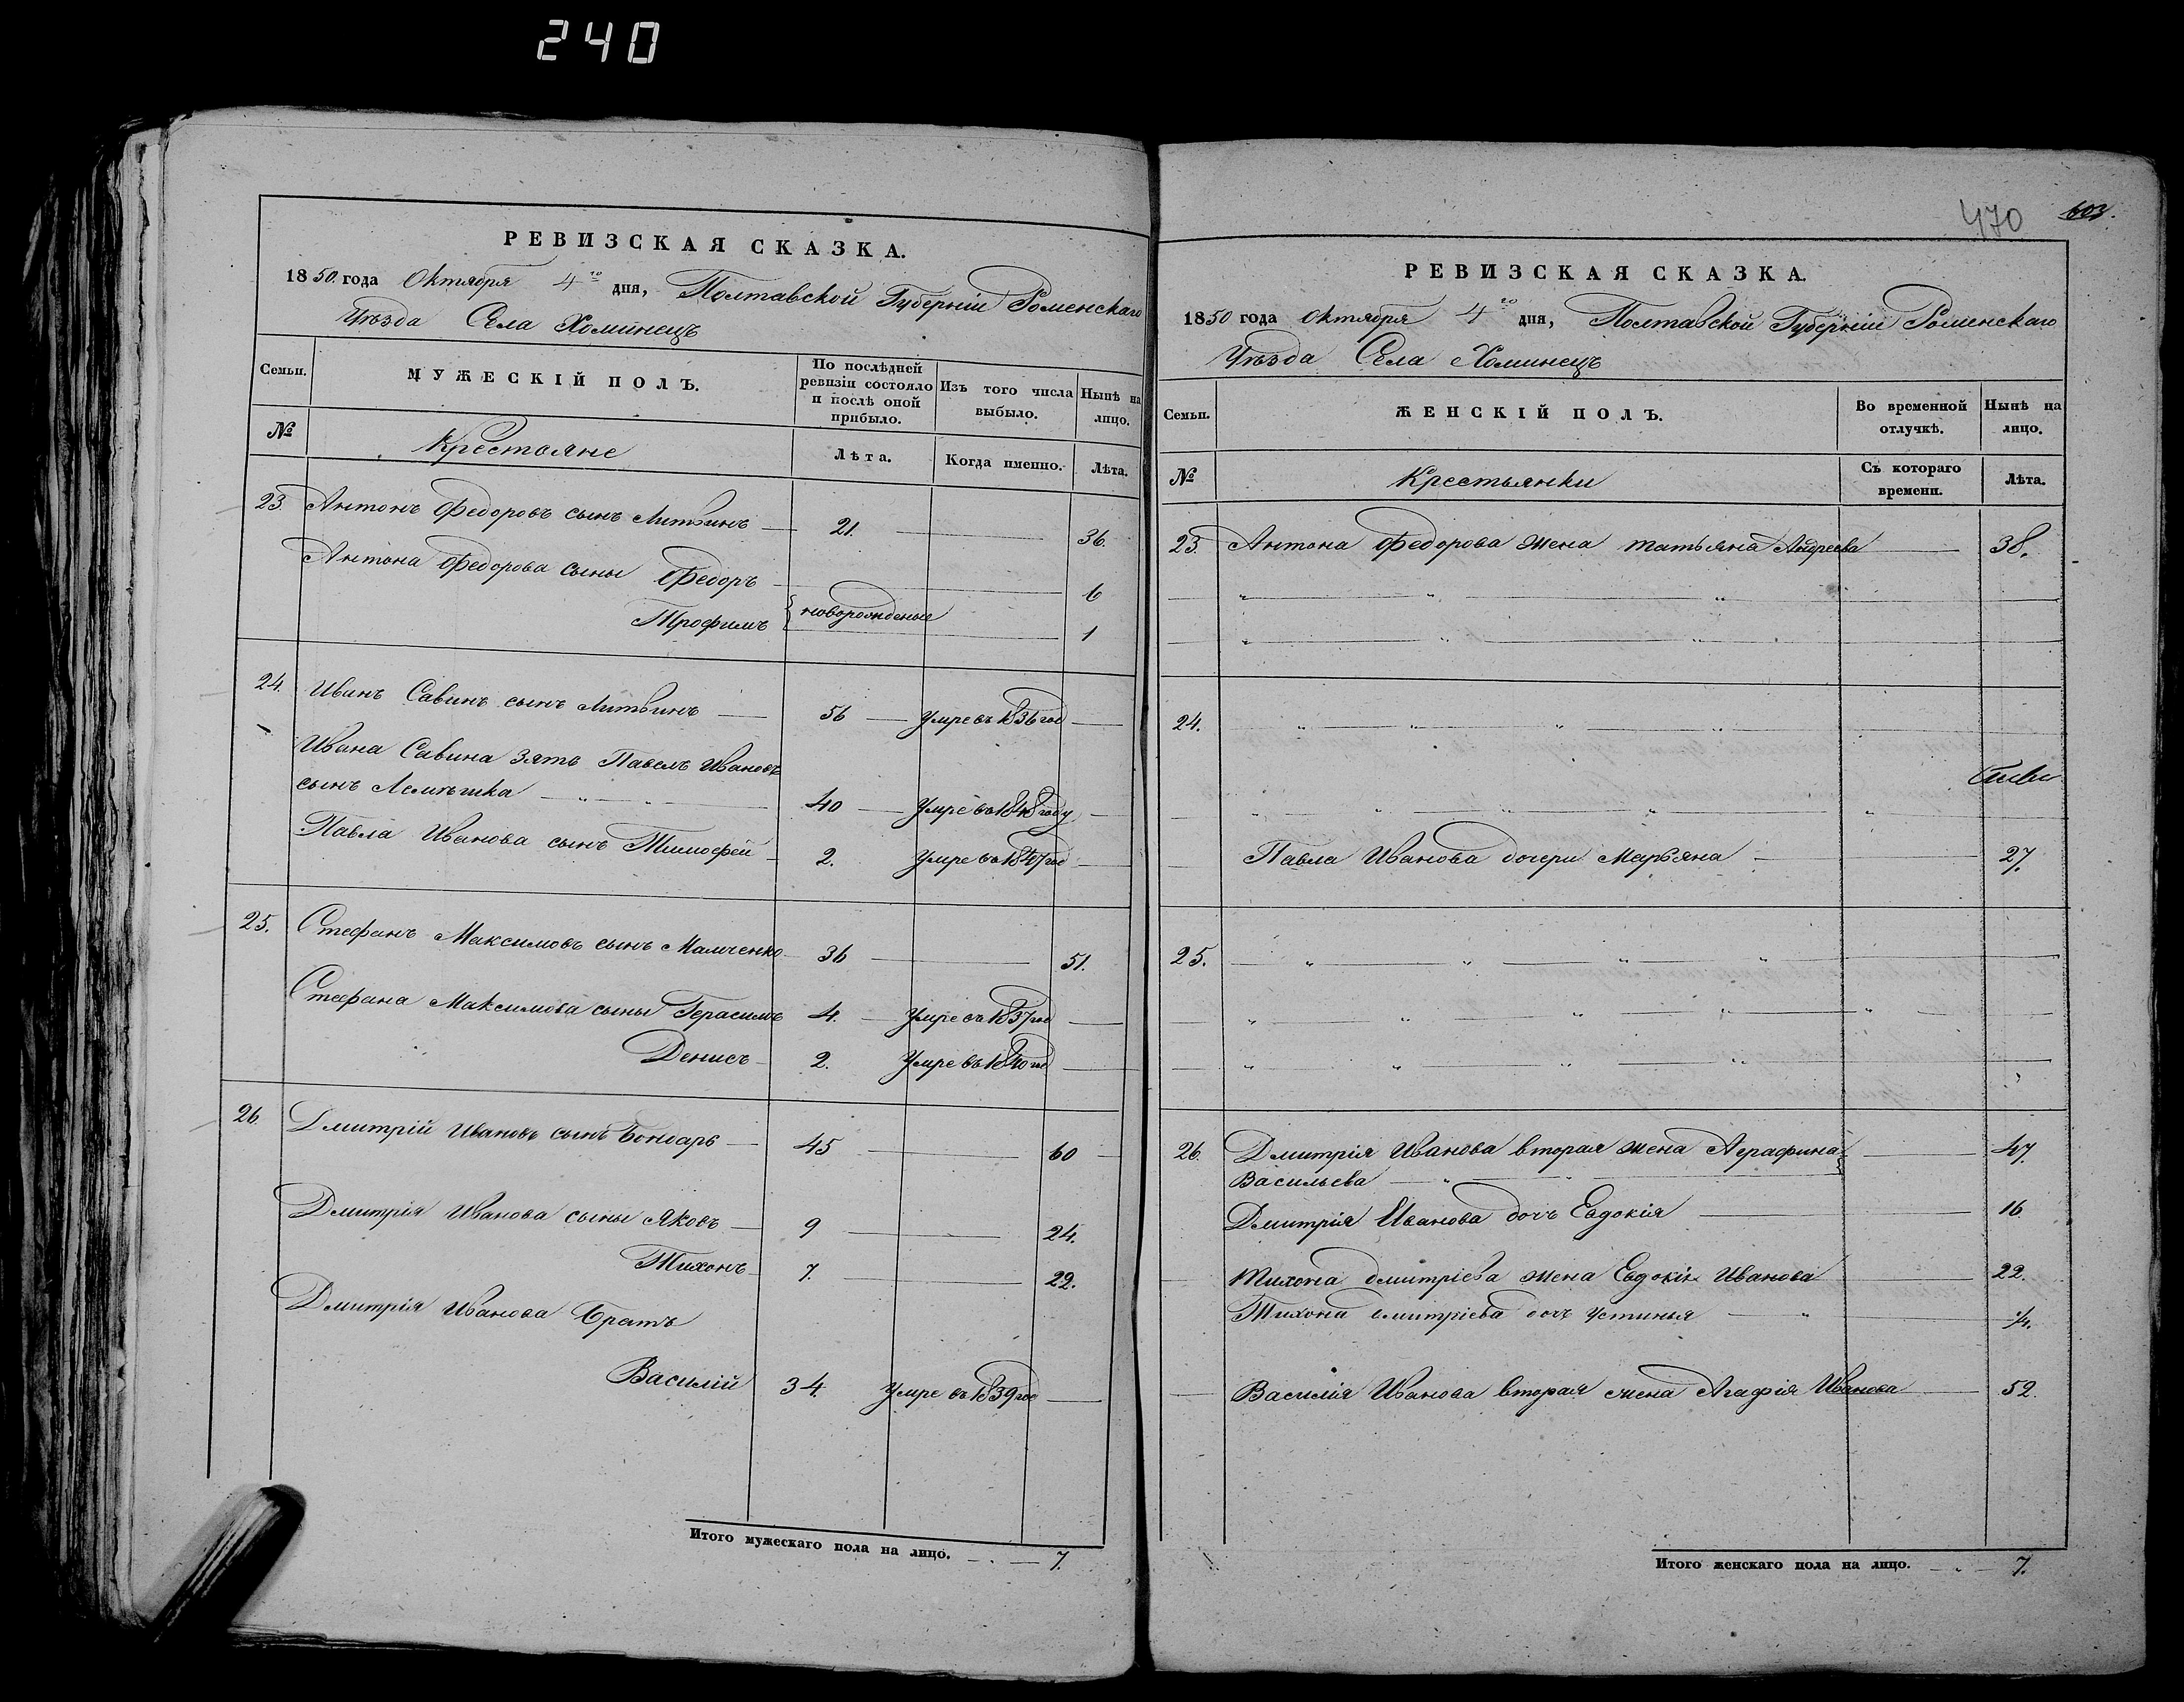 240
РЕВИЗСКАЯ СКАЗКА.
1850 года Октября 4го дня, Полтавской Губерніи Роменскаго
Уѣзда Села Хоминецъ
Семьи.
МУЖЕСКІЙ ПОЛЪ.
По послѣдней ревизіи состояло и послѣ оной прибыло.
Изъ того числа выбыло.
Нынѣ на лицо.
№
Крестьяне
Лѣта.
Когда именно.
Лѣта.
23. Антонъ Федоровъ сынъ Литвинъ — 21. — 36.
Антона Федорова сыны Федоръ — 6
Трофимъ новорожденые 1
24. Иванъ Савинъ сынъ Литвинъ — 56 — Умре въ 1836 год —
Ивана Савина зять Павелъ Ивановъ
сынъ Лемѣшка — 40 — Умре въ 1848 году —
Павла Иванова сынъ Тимофей — 2. Умре въ 1847 год —
25. Стефанъ Максимовъ сынъ Мамченко — 36 — 51.
Стефана Максимова сыны Герасимъ 4. — Умре въ 1837 год —
Денисъ — 2. Умре въ 1840 год —
26. Дмитрій Ивановъ сынъ Бондарь — 45 — 60 —
Дмитрія Иванова сыны Яковъ — 9 — 24.
Тихонъ — 7. — 22.
Дмитрія Иванова братъ
Василій 34. Умре въ 1839 год —
Итого мужескаго пола на лицо. — 7.
470 603.
РЕВИЗСКАЯ СКАЗКА
1850 года Октября 4го дня, Полтавской Губерніи Роменскаго
Уѣзда Села Хоминецъ
Семьи.
ЖЕНСКІЙ ПОЛЪ.
Во временной отлучкѣ.
Нынѣ на лицо.
№
Крестьянки
Съ котораго времени.
Лѣта.
23. Антона Федорова жена Татьяна Андреева — 38.
24.
Павла Иванова дочери Марьяна — 27.
25.
26. Дмитрія Иванова вторая жена Аграфина — 47.
Васильева —
Дмитрія Иванова дочь Евдокія — 16
Тихона Дмитріева жена Евдокія Иванова — 22.
Тихона Дмитріева дочь Устинья —
Василія Иванова вторая жена Агафія Иванова — 52.
Итого женскаго пола на лицо. — 7.